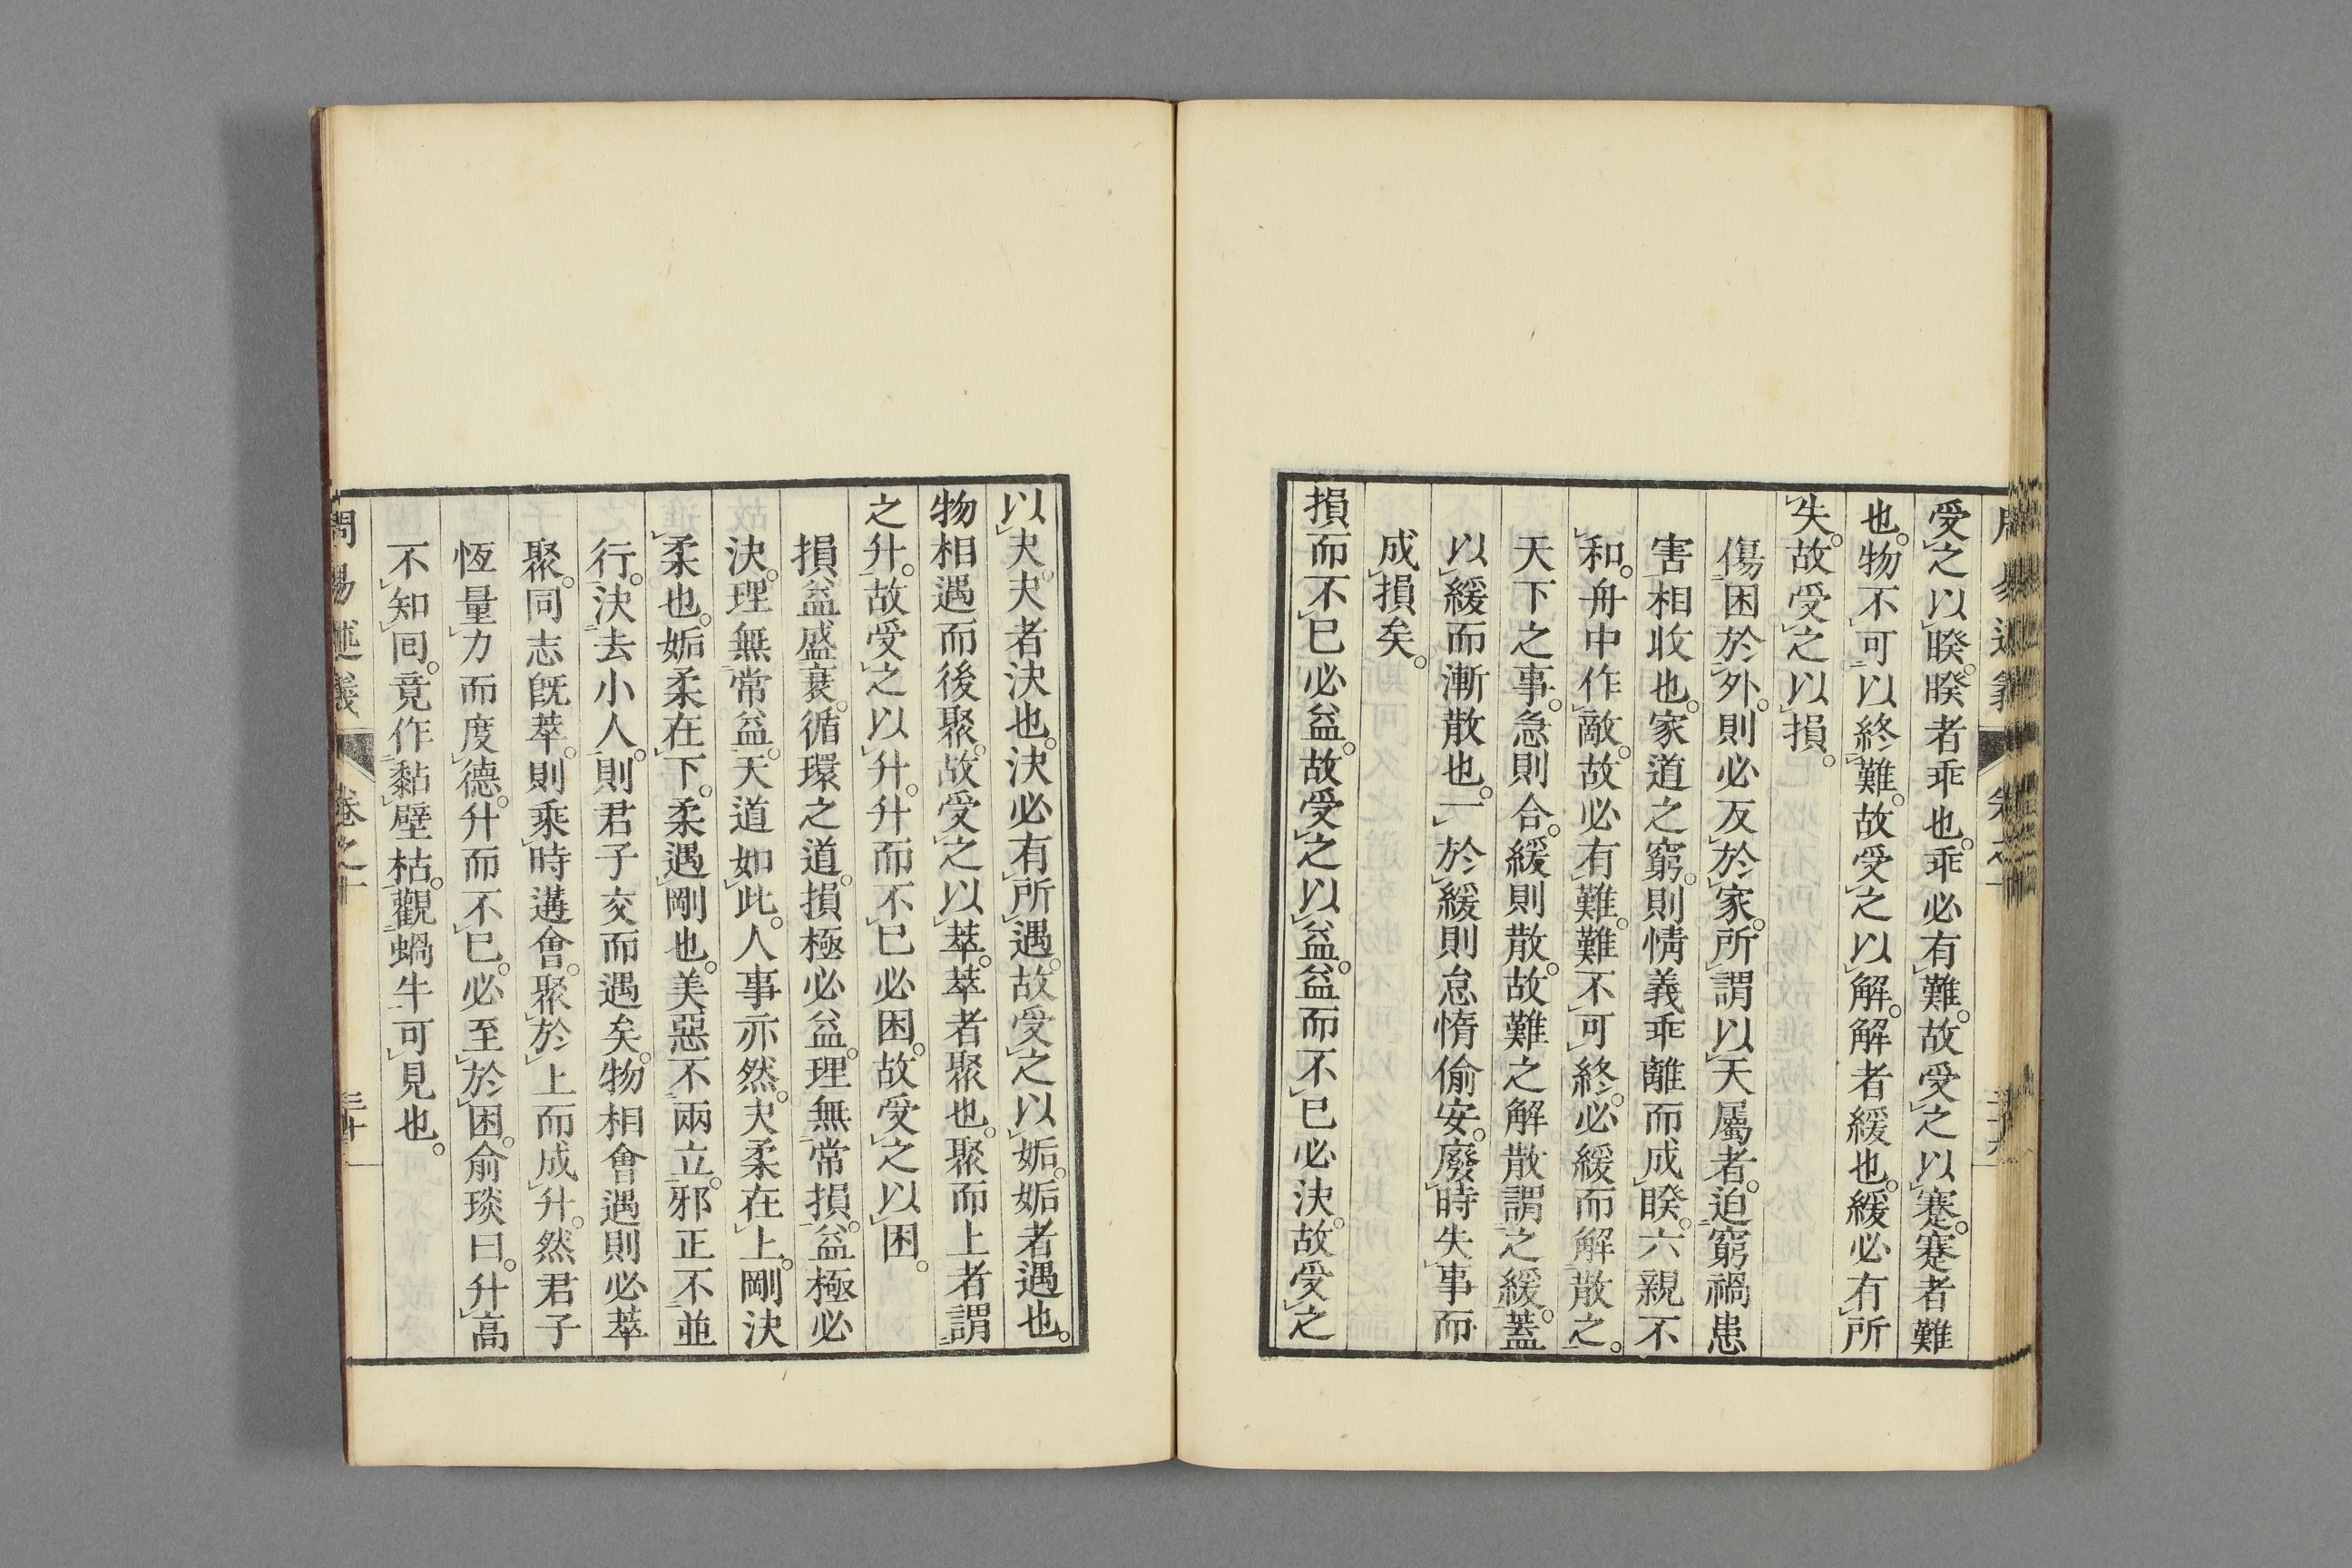 受之以睽。睽者乖也。乖必有難。故受之以蹇。蹇者難
也。物不可以終難。故受之以解。解者緩也。緩必有所
失。故受之以損。
傷困於外。則必反於家。所謂以天屬者。迫窮禍患
害相收也。家道之窮。則情義乖離而成睽。六親不
和。舟中作敵。故必有難。難不可終。必緩而解散之。
天下之事。急則合。緩則散。故難之解散謂之緩。蓋
以緩而漸散也。一於緩則怠惰偷安。廢時失事而
成損矣。
損而不已必益。故受之以益。益而不已必決。故受之
以夬。夬者決也。決必有所遇。故受之以姤。姤者遇也。
物相遇而後聚。故受之以萃。萃者聚也。聚而上者謂
之升。故受之以升。升而不已必困。故受之以困。
損益盛衰。循環之道。損極必益。理無常損。益極必
決。理無常益。天道如此。人事亦然。夬柔在上。剛決
柔也。姤柔在下。柔遇剛也。美惡不兩立。邪正不並
行。決去小人。則君子交而遇矣。物相會遇則必萃
聚。同志旣萃。則乘時遘會。聚於上而成升。然君子
恆量力而度德。升而不已。必至於困。俞琰曰。升高
不知回。竟作黏壁枯。觀蝸牛可見也。
周易述義 卷之十 三十